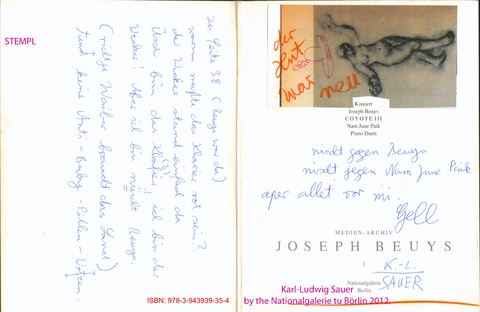 STEMPL
zu Seite 38 (Beuys war da)
warum mußte das Klavier rot sein?
der Wecker stand einfach da
Und bin das Klavier, ich bin der
Wecker! Aber ich bin nicht Beuys.
(richtige Weiber braucht das Land)
und keine Anti-Baby-Pillen-
ISBN: 978-3-943939-35-4
der
Hut
war neu
Konzert
Joseph Beuys
COYOTE III
Nam June Paik
Piano Duett
nicht gegen Beuys
nicht gegen Nam June Paik
aper allet vor mi.
Gell
MEDIEN-ARCHIV
JOSEPH BEUYS
1
K.-L.
SAUER
Nationalgalerie
Berlin
Karl-Ludwig Sauer
by the Nationalgalerie tu Börlin 2012.